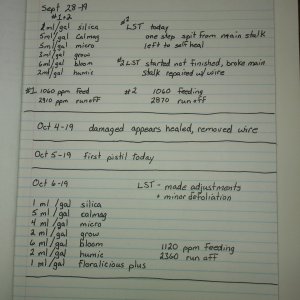 Sept 28-19
#1+2
2 ml/gal silica
5ml/gal calmag
5ml/gal micro
3ml/gal grow
6ml/gal bloom
2ml/gal humic
#1 LST today
one step split from main stalk
left to self heal
#2 LST started not finished, broke main
stalk repaired w/ wire
#1 1060 ppm feed #2 1060 feeding
2910 ppm runoff 2870 runoff
Oct 4-19 damaged appears healed, removed wire
Oct 5-19 first pistil today
Oct 6-19 LST - made adjustments
+ minor defoliation
1 ml /gal silica
5 ml /gal calmag
4 ml /gal micro
2 ml /gal grow
6 ml /gal bloom 1120 ppm feeding
2 ml /gal humic 2360 run off
1 ml /gal floralicious plus